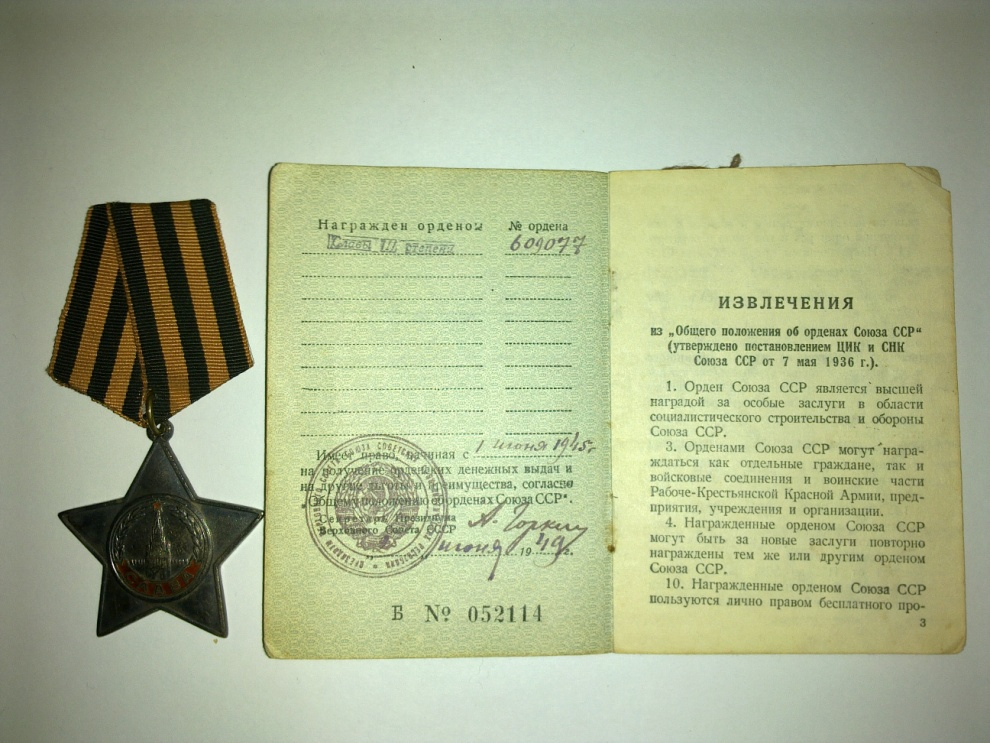 СЛАВА
Награжден орденом № ордена
Славы III степени 609077
Имеет право, начиная с 1 июня 1945г
на получение орденских денежных выдач и
на другие льготы и преимущества, согласно
"Общему положению об орденах Союза ССР".
Секретарь Президиума
Верховного Совета СССР А. Горкин
июня 1949 г.
Б № 052114
ИЗВЛЕЧЕНИЯ
из „Общего положения об орденах Союза ССР“
(утверждено постановлением ЦИК и СНК
Союза ССР от 7 мая 1936 г.).
1. Орден Союза ССР является высшей
наградой за особые заслуги в области
социалистического строительства и обороны
Союза ССР.
3. Орденами Союза ССР могут награ-
ждаться как отдельные граждане, так и
войсковые соединения и воинские части
Рабоче-Крестьянской Красной Армии, пред-
приятия, учреждения и организации.
4. Награжденные орденом Союза ССР
могут быть за новые заслуги повторно
награждены тем же или другим орденом
Союза ССР.
10. Награжденные орденом Союза ССР
пользуются лично правом бесплатного про-
3